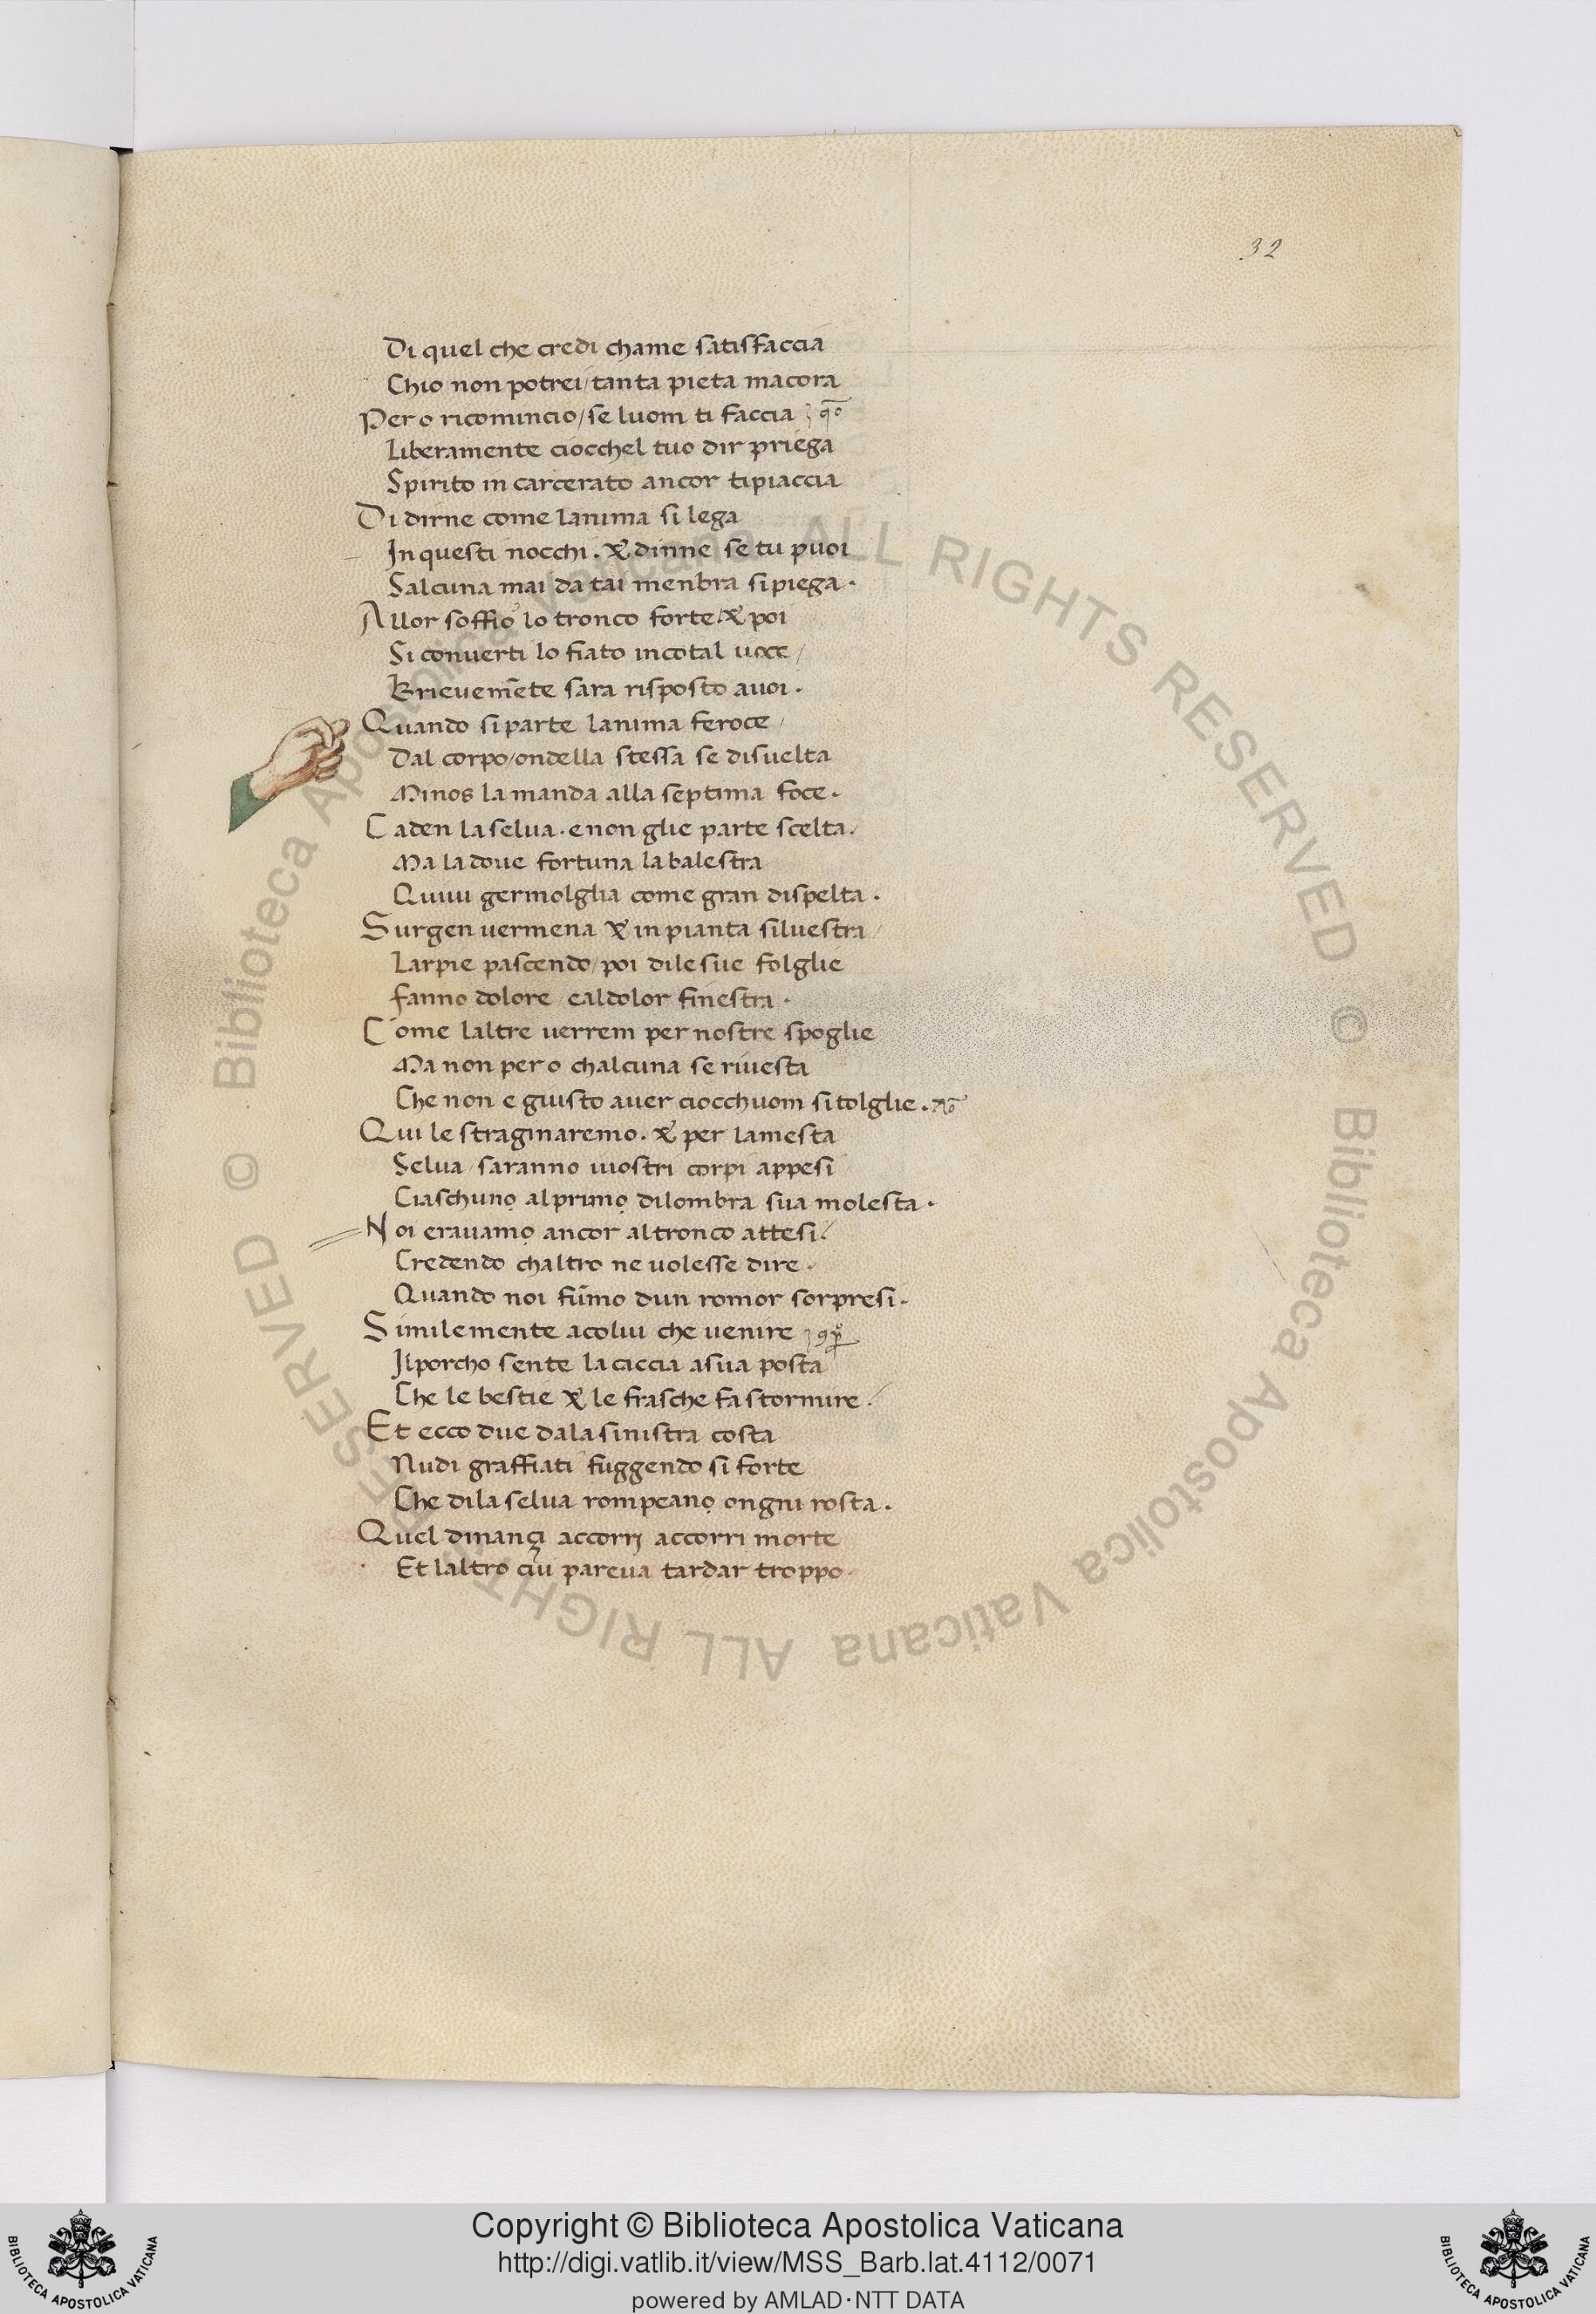 32
Di quel che credi chame satisfaccia
Chio non potrei / tanta pieta macora
Pero ricomincio / se luom ti faccia
Liberamente ciocchel tuo dir priega
Spirito in carcerato ancor tipiaccia
Di dirne come lanima si lega
In questi nocchi . & dinne se tu puoi
Salcuna mai da tai menbra si piega .
Allor soffio lo tronco forte / & poi
Si conuerti lo fiato in cotal uoce /
Brieuem̄ete sara risposto auoi .
Quando si parte lanima feroce /
Dal corpo / ondella stessa se disuelta
Minos la manda alla septima foce .
Caden la selua . e non glie parte scelta /
Ma la doue fortuna la balestra
Quiui germolglia come gran dispelta .
Surgen uermena & in pianta siluestra /
Larpie pascendo / poi dile sue folglie
fanno dolore / e al dolor finestra .
Come laltre uerrem per nostre spoglie
Ma non pero chalcuna se riuesta
Che non e giusto auer ciocchuom si tolglie .
Qui le straginaremo . & per la mesta
Selua / saranno i uostri corpi appesi
Ciaschunọ al prunọ dilombra sua molesta .
Noi erauamọ ancor al tronco attesi /
Credendo chaltro ne uolesse dire .
Quando noi fūmo dun romor sorpresi .
Similemente a colui che uenire
Il porcho sente la caccia a sua posta
Che le bestie & le frasche fa stormire /
Et ecco due dala sinistra costa
Nudi graffiati fuggendo si forte
Che dila selua rompeanọ ongni rosta .
Quel dinançi accorri accorri morte
Et laltro cui pareua tardar troppo
© Biblioteca Apostolica Vaticana ALL RIGHTS RESERVED © Biblioteca Apostolica Vaticana ALL RIGHTS RESERVED
Copyright © Biblioteca Apostolica Vaticana
http://digi.vatlib.it/view/MSS_Barb.lat.4112/0071
powered by AMLAD·NTT DATA
BIBLIOTECA APOSTOLICA VATICANA
BIBLIOTECA APOSTOLICA VATICANA